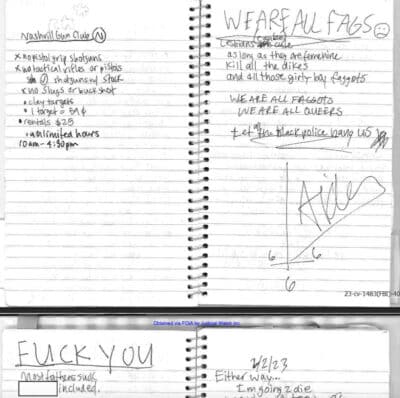 Nashvill Gun Club N
x no pistol grip shotguns
x no tactical rifles or pistols
shotguns w/ stock
x no slugs or buckshot
• clay targets
• 1 target = 39¢
• rentals $25
• unlimited hours
10am - 4:30pm
WE ARE ALL FAGS
Lesbians
as long as they are feminine
Kill all the dikes
and all those girly boy faggots
WE ARE ALL FAGGOTS
WE ARE ALL QUEERS
Let all the black police hang US
Aiden
6 6
6
Obtained via FOIA by Judicial Watch Inc.
FUCK YOU
Most fathers suck
included.
2/2/23
Either way...
I'm going 2 die